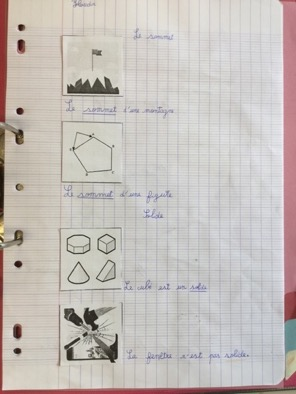 Le sommet
Le sommet d'une montagne
Le sommet d'une figure
Solide
Le cube est un solide
La fenêtre n'est pas solide.